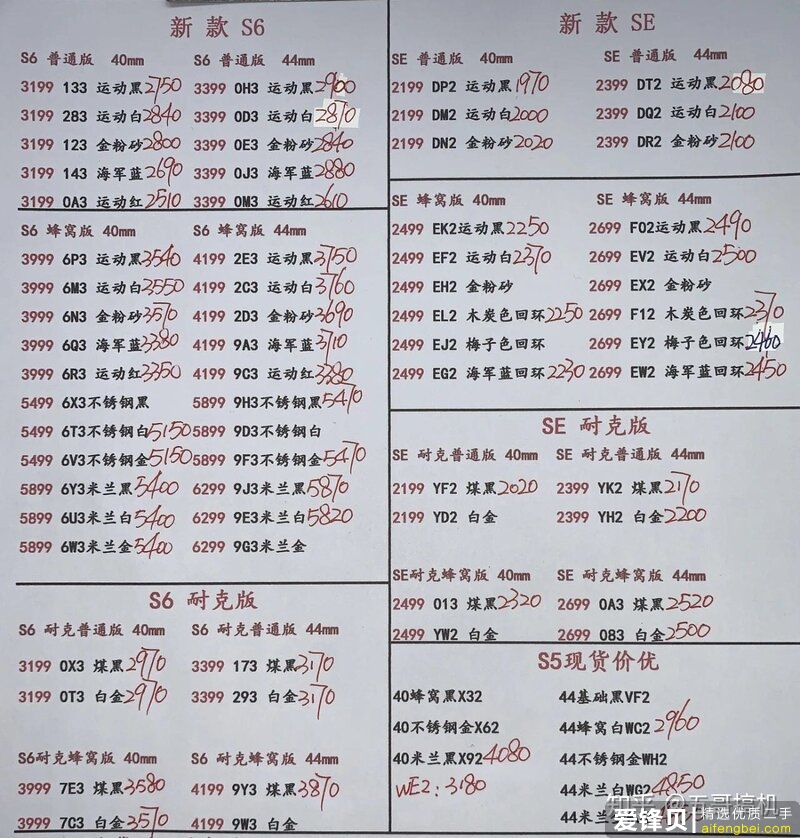 新 款 S6
S6 普通版 40mm S6 普通版 44mm
3199 133 运动黑2750 3399 0H3 运动黑2900
3199 283 运动白2840 3399 0D3 运动白2870
3199 123 金粉砂2800 3399 0E3 金粉砂2840
3199 143 海军蓝2690 3399 0J3 海军蓝2880
3199 0A3 运动红2510 3399 0M3 运动红2610
S6 蜂窝版 40mm S6 蜂窝版 44mm
3999 6P3 运动黑3540 4199 2E3 运动黑3750
3999 6M3 运动白3550 4199 2C3 运动白3760
3999 6N3 金粉砂3570 4199 2D3 金粉砂3690
3999 6Q3 海军蓝3380 4199 9A3 海军蓝3710
3999 6R3 运动红3350 4199 9C3 运动红3380
5499 6X3不锈钢黑 5899 9H3不锈钢黑5470
5499 6T3不锈钢白5150 5899 9D3不锈钢白
5499 6V3不锈钢金5150 5899 9F3不锈钢金5470
5899 6Y3米兰黑5400 6299 9J3米兰黑5870
5899 6U3米兰白5400 6299 9E3米兰白5820
5899 6W3米兰金5400 6299 9G3米兰金
S6 耐克版
S6 耐克普通版 40mm S6 耐克普通版 44mm
3199 0X3 煤黑2970 3399 173 煤黑3170
3199 0T3 白金2970 3399 293 白金3170
S6耐克蜂窝版 40mm S6 耐克蜂窝版 44mm
3999 7E3 煤黑3580 4199 9Y3 煤黑3870
3999 7C3 白金3570 4199 9W3 白金
新 款 SE
SE 普通版 40mm SE 普通版 44mm
2199 DP2 运动黑1970 2399 DT2 运动黑2080
2199 DM2 运动白2000 2399 DQ2 运动白2100
2199 DN2 金粉砂2020 2399 DR2 金粉砂2100
SE 蜂窝版 40mm SE 蜂窝版 44mm
2499 EK2运动黑2250 2699 F02运动黑2490
2499 EF2 运动白2370 2699 EV2 运动白2500
2499 EH2 金粉砂 2699 EX2 金粉砂
2499 EL2 木炭色回环2250 2699 F12 木炭色回环2370
2499 EJ2 梅子色回环 2699 EY2 梅子色回环2460
2499 EG2 海军蓝回环2230 2699 EW2 海军蓝回环2450
SE 耐克版
SE 耐克普通版 40mm SE 耐克普通版 44mm
2199 YF2 煤黑2020 2399 YK2 煤黑2170
2199 YD2 白金 2399 YH2 白金2200
SE耐克蜂窝版 40mm SE 耐克蜂窝版 44mm
2499 013 煤黑2320 2699 0A3 煤黑2520
2499 YW2 白金 2699 083 白金2500
S5现货价优
40蜂窝黑X32 44基础黑VF2
40不锈钢金X62 44蜂窝白WC2 2960
40米兰黑X92 4080 44不锈钢金WH2
WE2:3180 44米兰白WG2 4850
44米兰
知乎 @五哥搞机
爱锋贝 精选优质二手
aifengbei.com